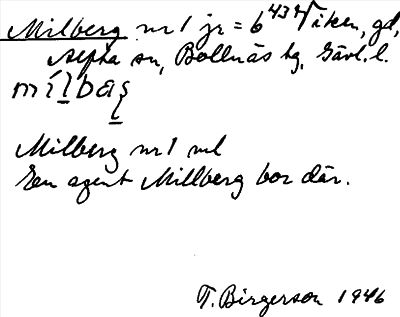 Milberg nr 1 jr = 6 43 Viken, gd,
Alfta sn, Bollnäs tg, Gävl. l.
mílbæʂ
Milberg nr 1 ml
En agent Millberg bor där.
T. Birgerson 1946